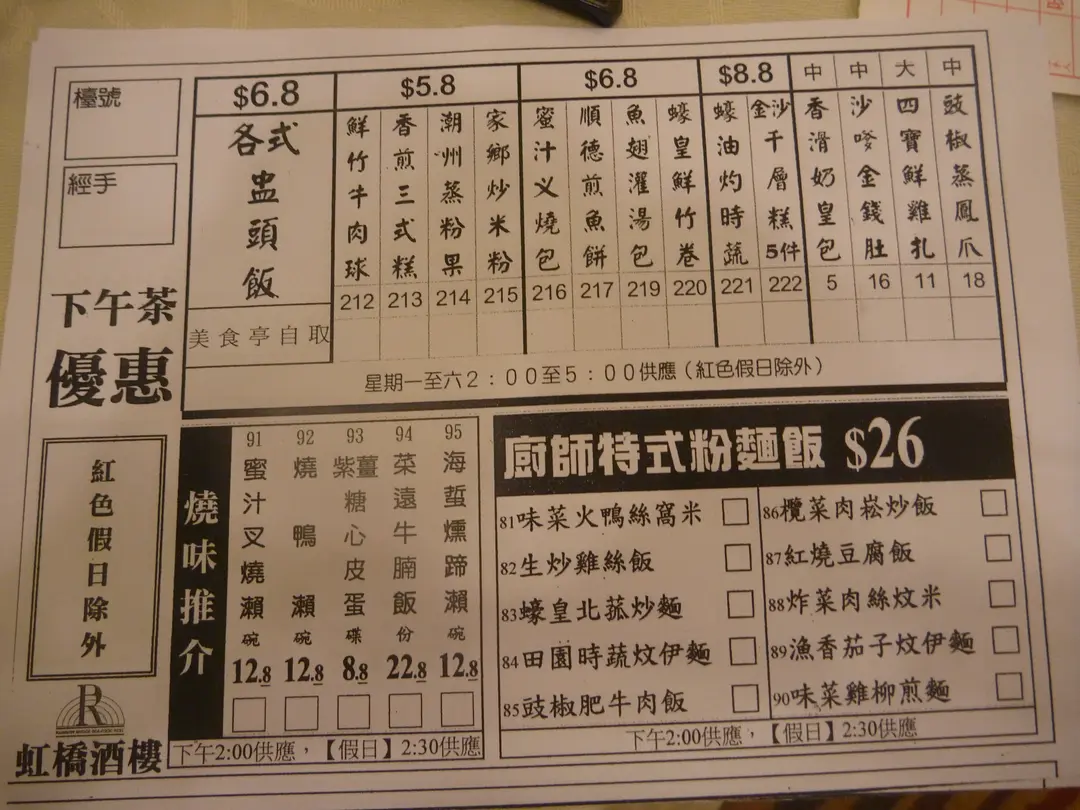 檯號
經手
下午茶
優惠
紅色假日除外
R
虹橋酒樓
$6.8
各式
盅頭飯
美食亭自取
$5.8
鮮竹牛肉球
212
香煎三式糕
213
潮州蒸粉果
214
家鄉炒米粉
215
$6.8
蜜汁义燒包
216
順德煎魚餅
217
魚翅灌湯包
219
蠔皇鮮竹卷
220
$8.8
蠔油灼時蔬
221
金沙千層糕5件
222
中
香滑奶皇包
5
中
沙嗲金錢肚
16
大
四寶鮮雞扎
11
中
豉椒蒸鳳爪
18
星期一至六2:00至5:00供應(紅色假日除外)
燒味推介
91
蜜汁叉燒瀨
碗
12.8
92
燒鴨瀨
碗
12.8
93
紫薑糖心皮蛋
碟
8.8
94
菜遠牛腩飯
份
22.8
95
海蜇燻蹄瀨
碗
12.8
下午2:00供應,【假日】2:30供應
廚師特式粉麵飯 $26
81味菜火鴨絲窩米
82生炒雞絲飯
83蠔皇北菰炒麵
84田園時蔬炆伊麵
85豉椒肥牛肉飯
86欖菜肉崧炒飯
87紅燒豆腐飯
88炸菜肉絲炆米
89漁香茄子炆伊麵
90味菜雞柳煎麵
下午2:00供應,【假日】2:30供應